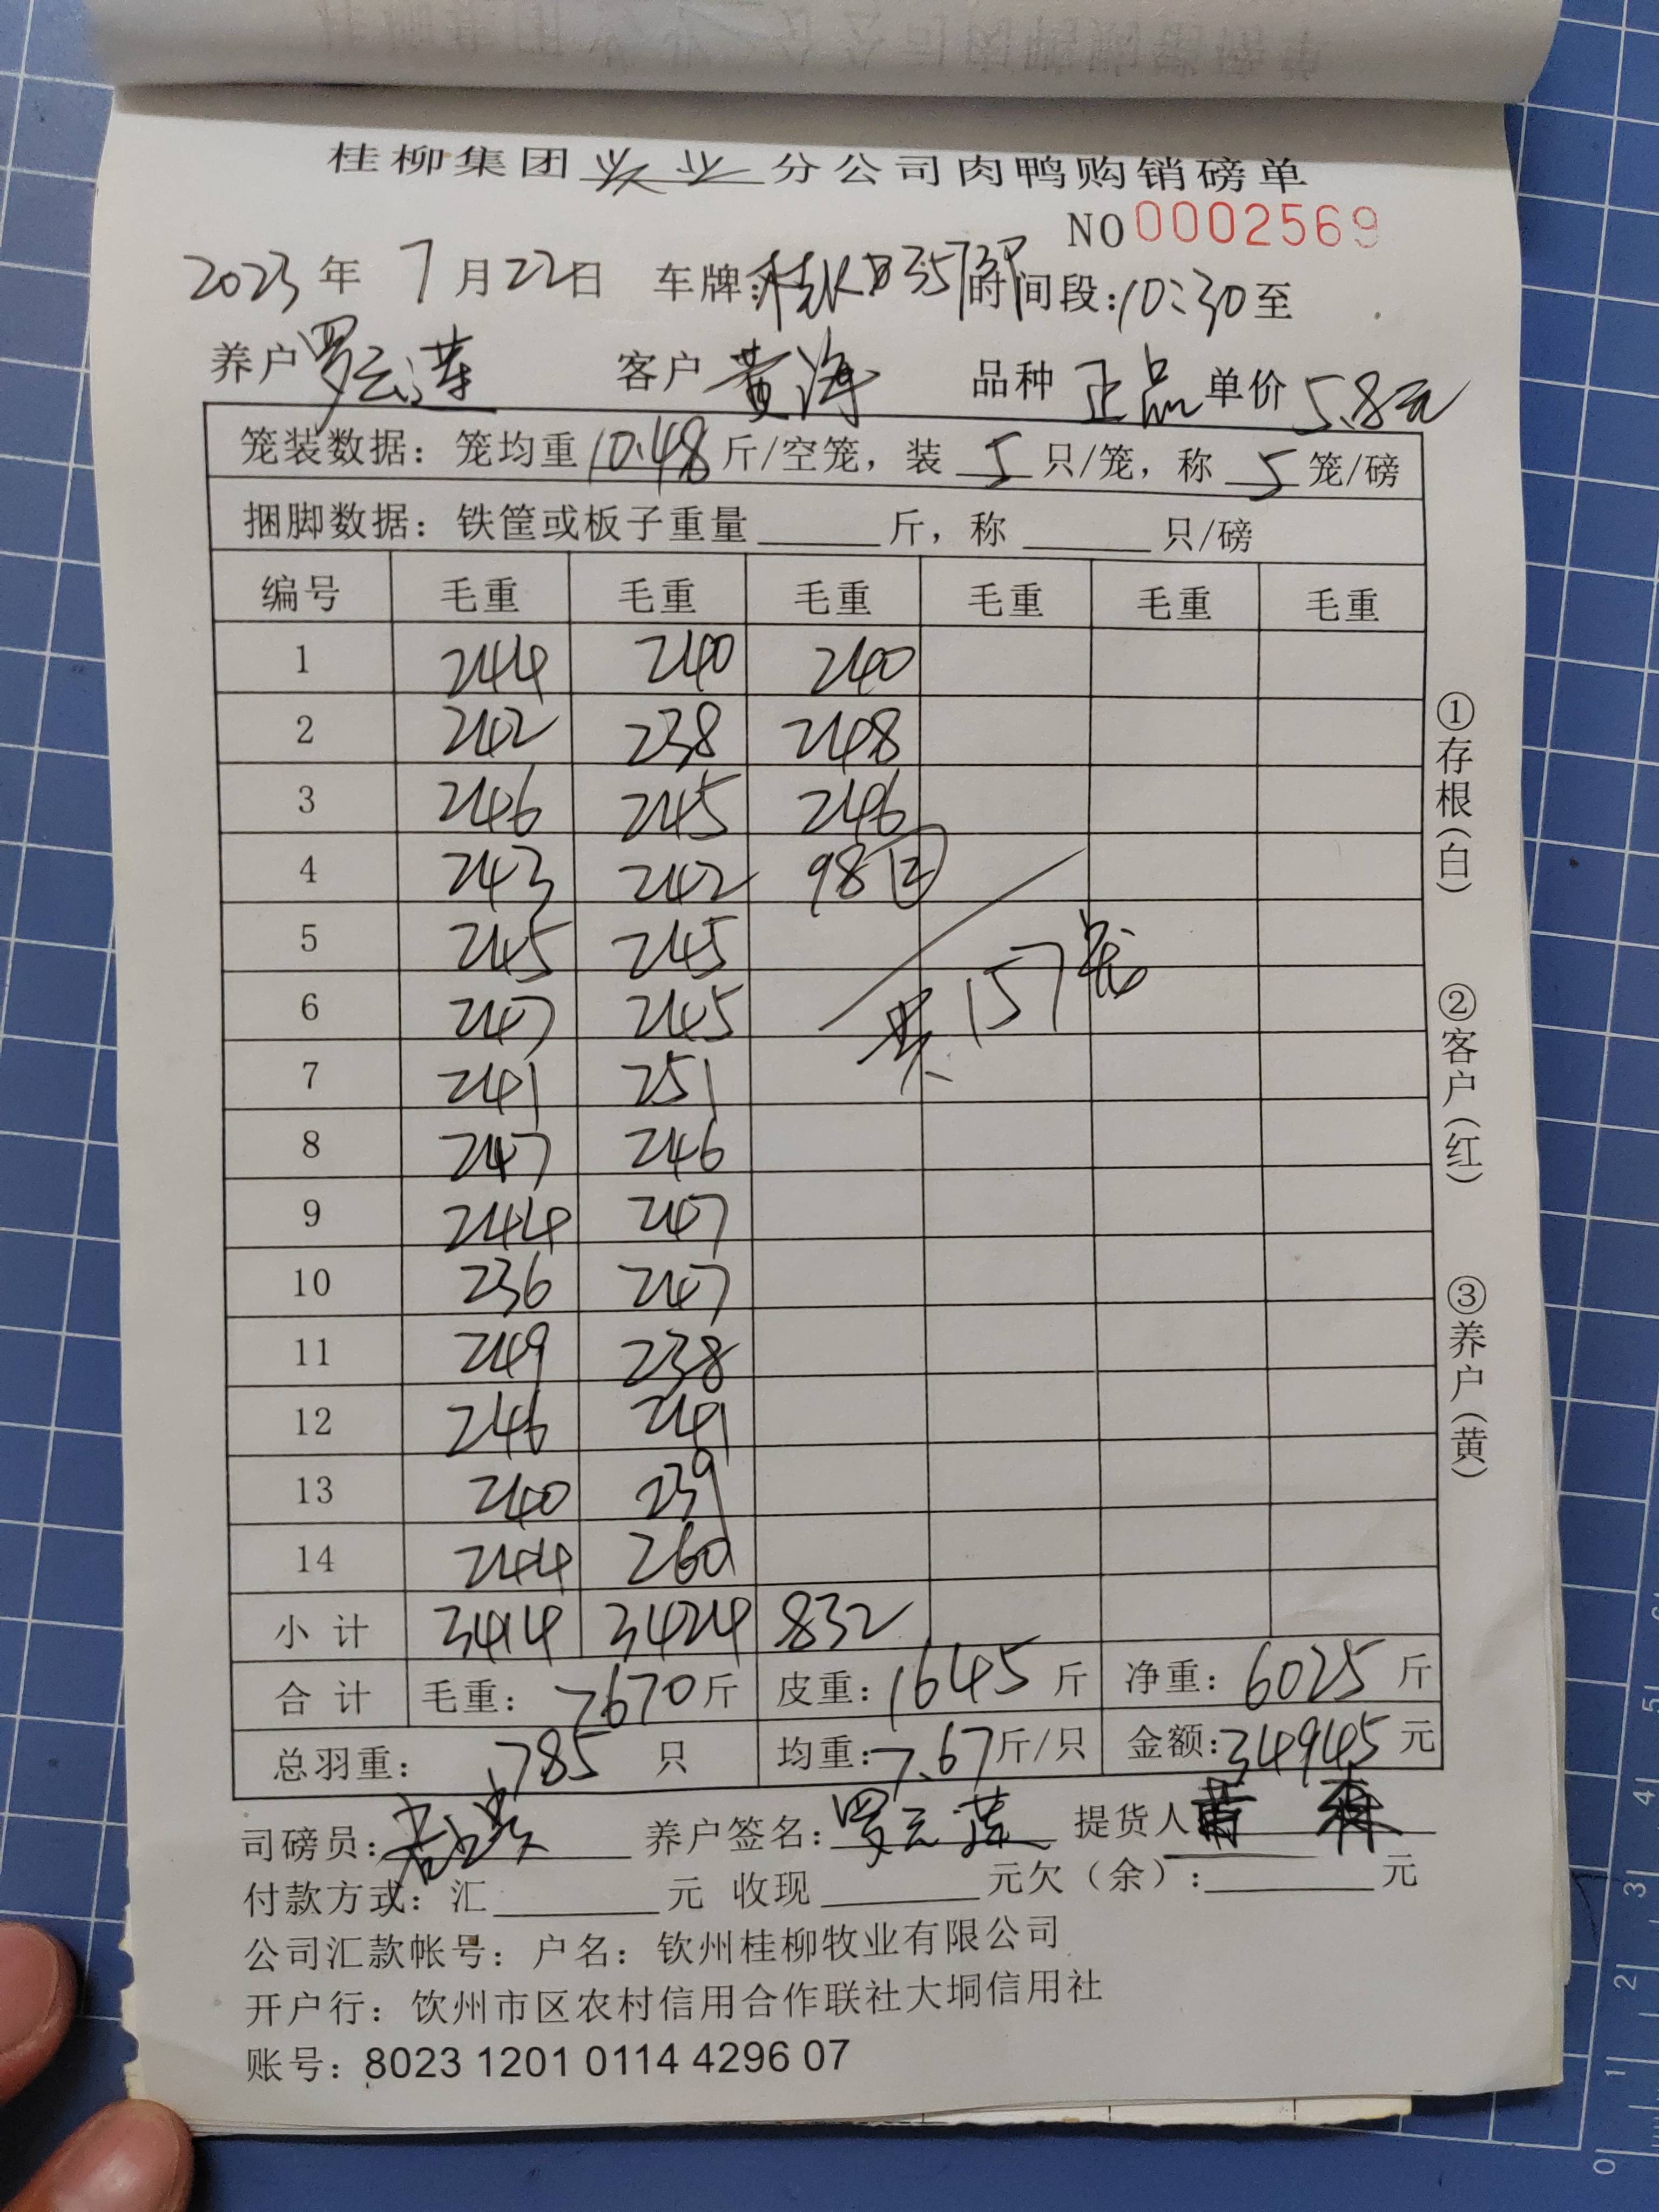 桂柳集团牧业分公司肉鸭购销磅单
NO 0002569
2023年 7月22日 车牌:桂KB3573P 时间段:10:30至
养户 罗云莲 客户 黄海 品种 正品 单价 5.8元
笼装数据：笼均重10.48斤/空笼，装 5 只/笼，称 5 笼/磅
捆脚数据：铁筐或板子重量______斤，称______只/磅
编号 毛重 毛重 毛重 毛重 毛重 毛重
1 244 240 240
2 242 238 248
3 246 245 246
4 243 242 98
5 245 245
6 247 245 共157笼
7 241 251
8 247 246
9 244 247
10 236 247
11 249 238
12 246 241
13 240 239
14 244 260
小计 3414 3424 832
合计 毛重：7670斤 皮重：1645斤 净重：6025斤
总羽重：785 只 均重：7.67斤/只 金额：34945元
司磅员： 养户签名：罗云莲 提货人 黄
付款方式：汇______元 收现______元欠（余）:______元
公司汇款帐号：户名：钦州桂柳牧业有限公司
开户行：饮州市区农村信用合作联社大垌信用社
账号：8023 1201 0114 4296 07
①存根(白)
②客户(红)
③养户(黄)